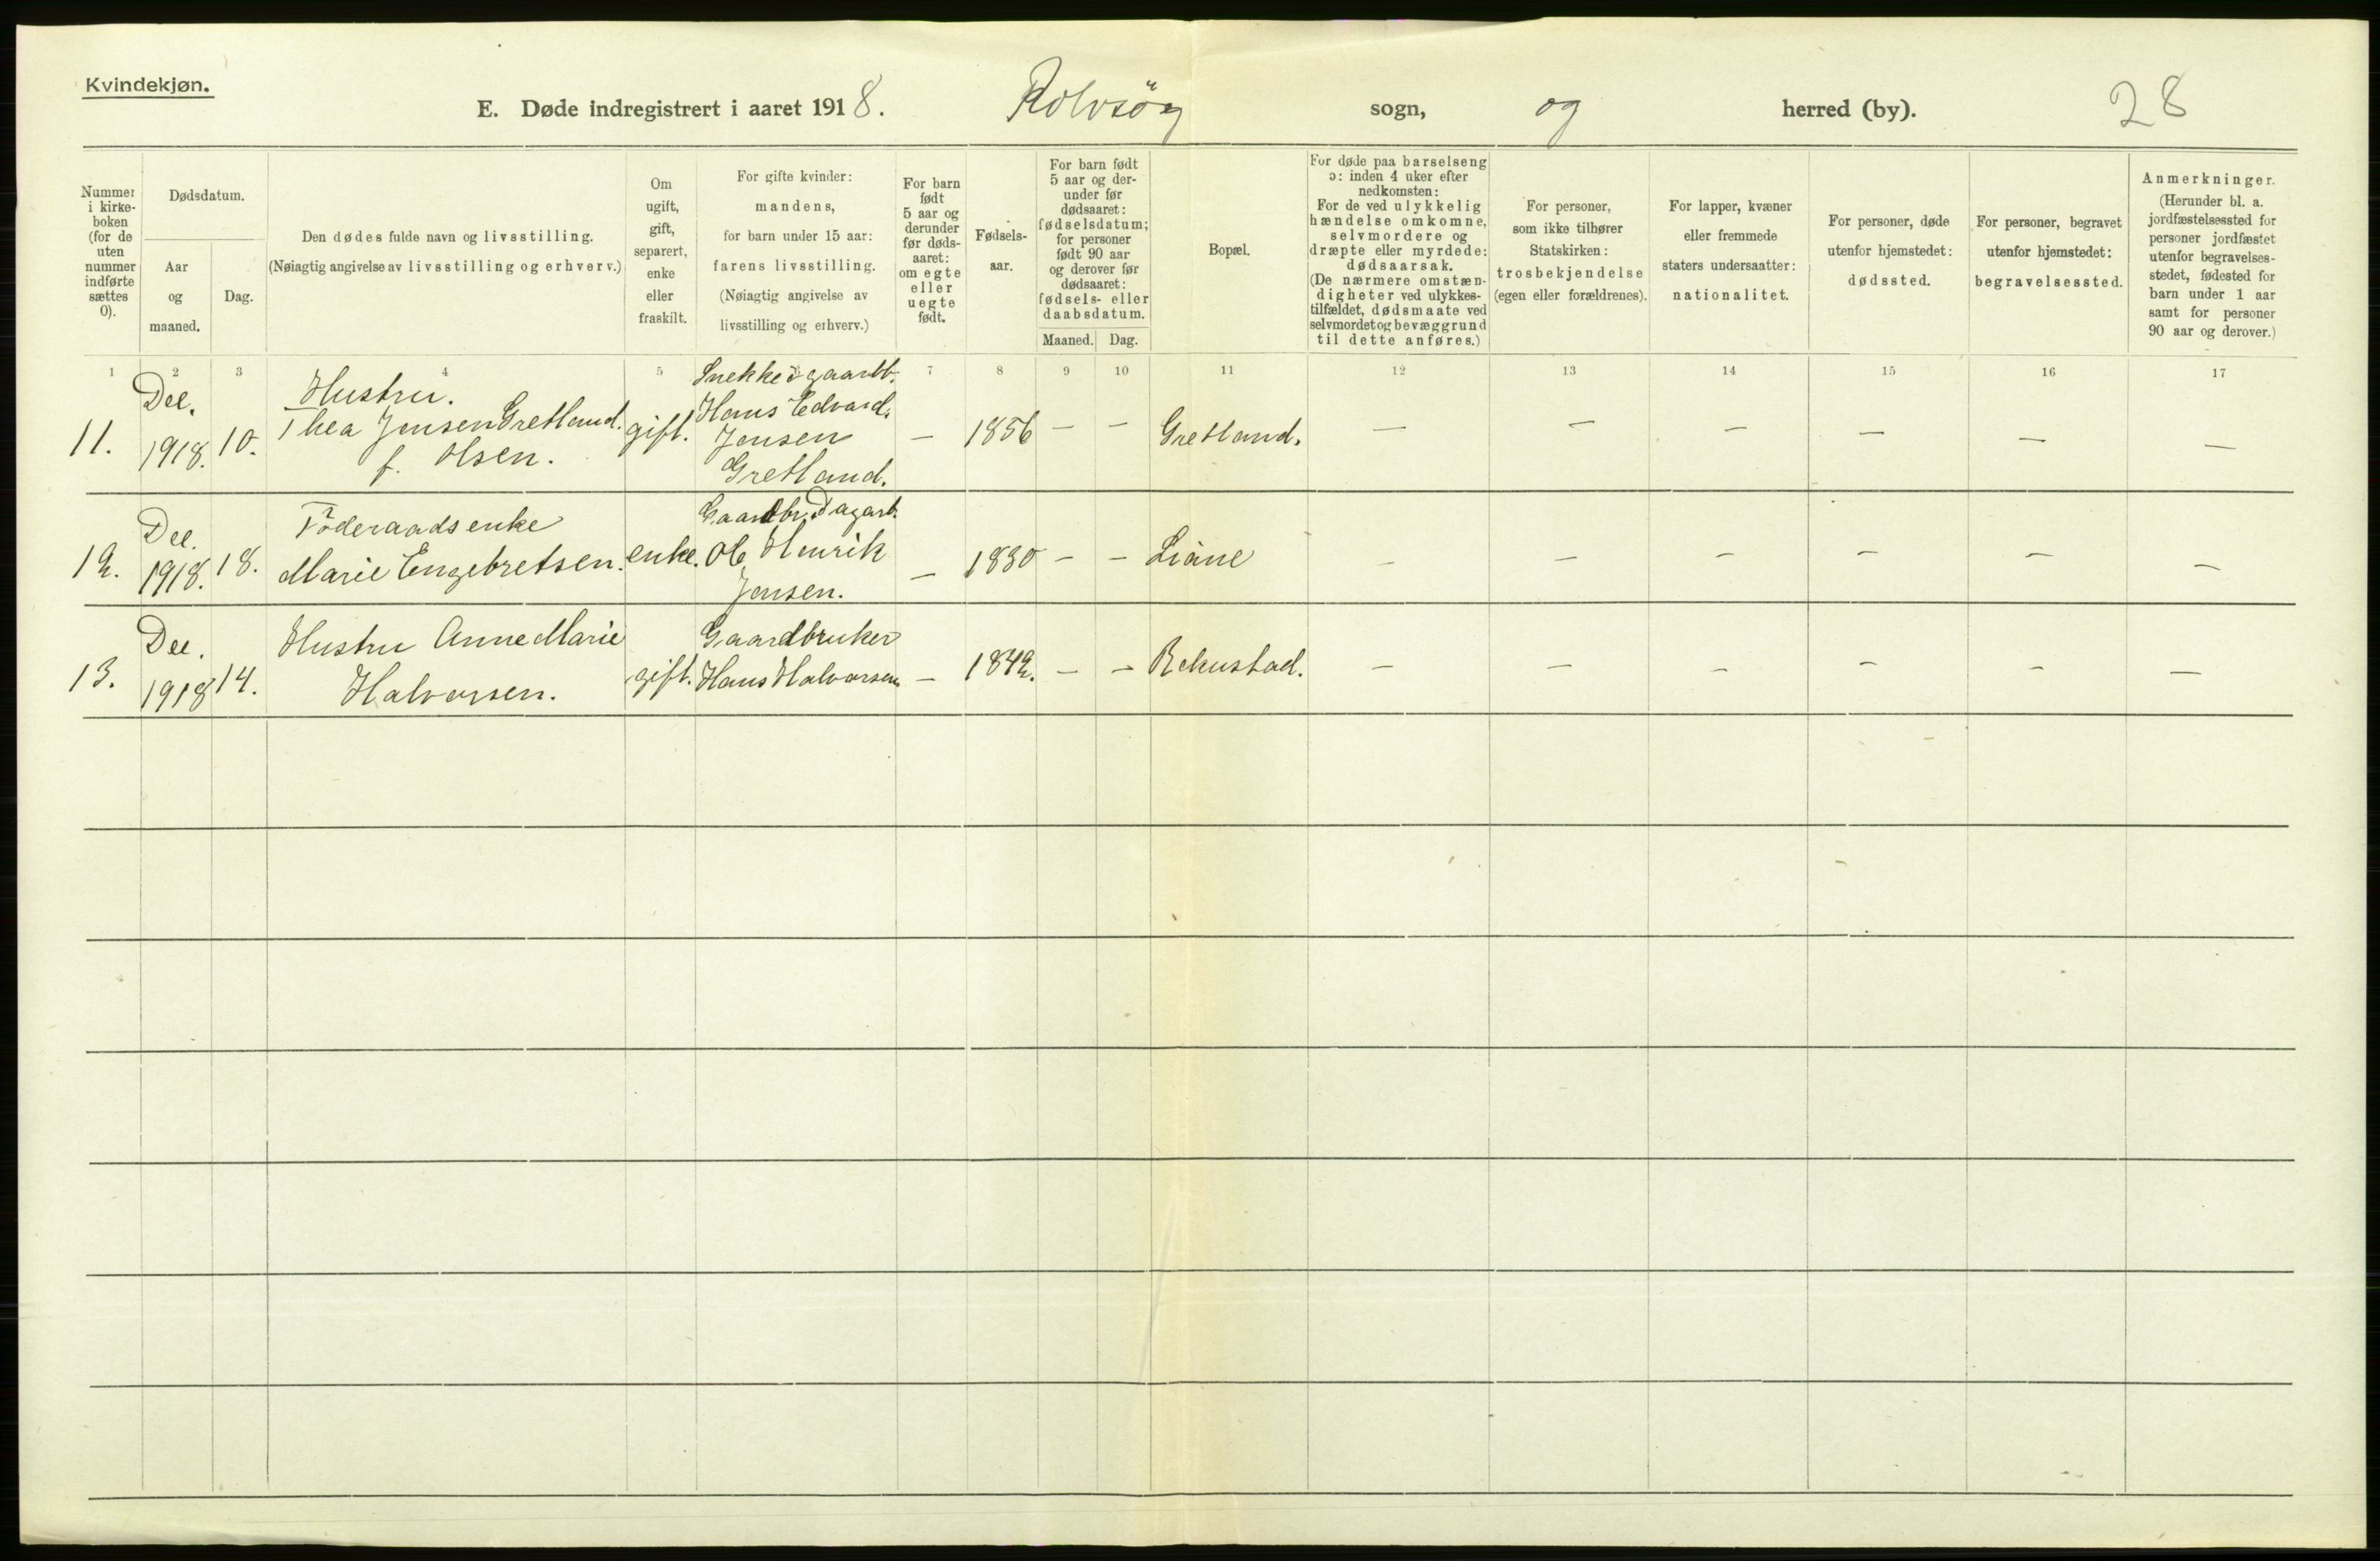 Kvindekjøn.
E. Døde indregistrert i aaret 1918. Rolvsöy sogn, og herred (by). 28
Nummer i kirkeboken (for de uten nummer indførte sættes 0).
Dødsdatum.
Aar og maaned.
Dag.
Den dødes fulde navn og livsstilling.
(Nøiagtig angivelse av livsstilling og erhverv.)
Om ugift, gift, separert, enke eller fraskilt.
For gifte kvinder:
mandens,
for barn under 15 aar:
farens livsstilling.
(Nøiagtig angivelse av
livsstilling og erhverv.)
For barn født 5 aar og derunder før dødsaaret: om egte eller uegte født.
Fødselsaar.
For barn født 5 aar og derunder før dødsaaret: fødselsdatum; for personer født 90 aar og derover før dødsaaret: fødsels- eller daabsdatum.
Maaned. Dag.
Bopæl.
For døde paa barselseng
ɔ: inden 4 uker efter
nedkomsten:
For de ved ulykkelig
hændelse omkomne,
selvmordere og
dræpte eller myrdede:
dødsaarsak.
(De nærmere omstæn-
digheter ved ulykkes-
tilfældet, dødsmaate ved
selvmordet og bevæggrund
til dette anføres.)
For personer,
som ikke tilhører
Statskirken:
trosbekjendelse
(egen eller forældrenes).
For lapper, kvæner
eller fremmede
staters undersaatter:
nationalitet.
For personer, døde
utenfor hjemstedet:
dødssted.
For personer, begravet
utenfor hjemstedet:
begravelsessted.
Anmerkninger.
(Herunder bl. a.
jordfæstelsessted for
personer jordfæstet
utenfor begravelses-
stedet, fødested for
barn under 1 aar
samt for personer
90 aar og derover.)
1 2 3 4 5 6 7 8 9 10 11 12 13 14 15 16 17
11. Dec. 1918. 10. Hustru. Thea Jensen Gretland. f. Olsen. gift. Snekker gaardb. Hans Edvard. Jensen Gretland. — 1856 — — Gretland. — — — — — —
12. Dec. 1918. 18. Föderaadsenke Marie Engebretsen. enke. Gaardbr. Dagarb. Ole Henrik Jensen. — 1830 — — Liane — — — — — —
13. Dec. 1918 14. Hustru Anne Marie Halvorsen. gift. Gaardbruker Hans Halvorsen — 1842. — — Rekustad. — — — — — —